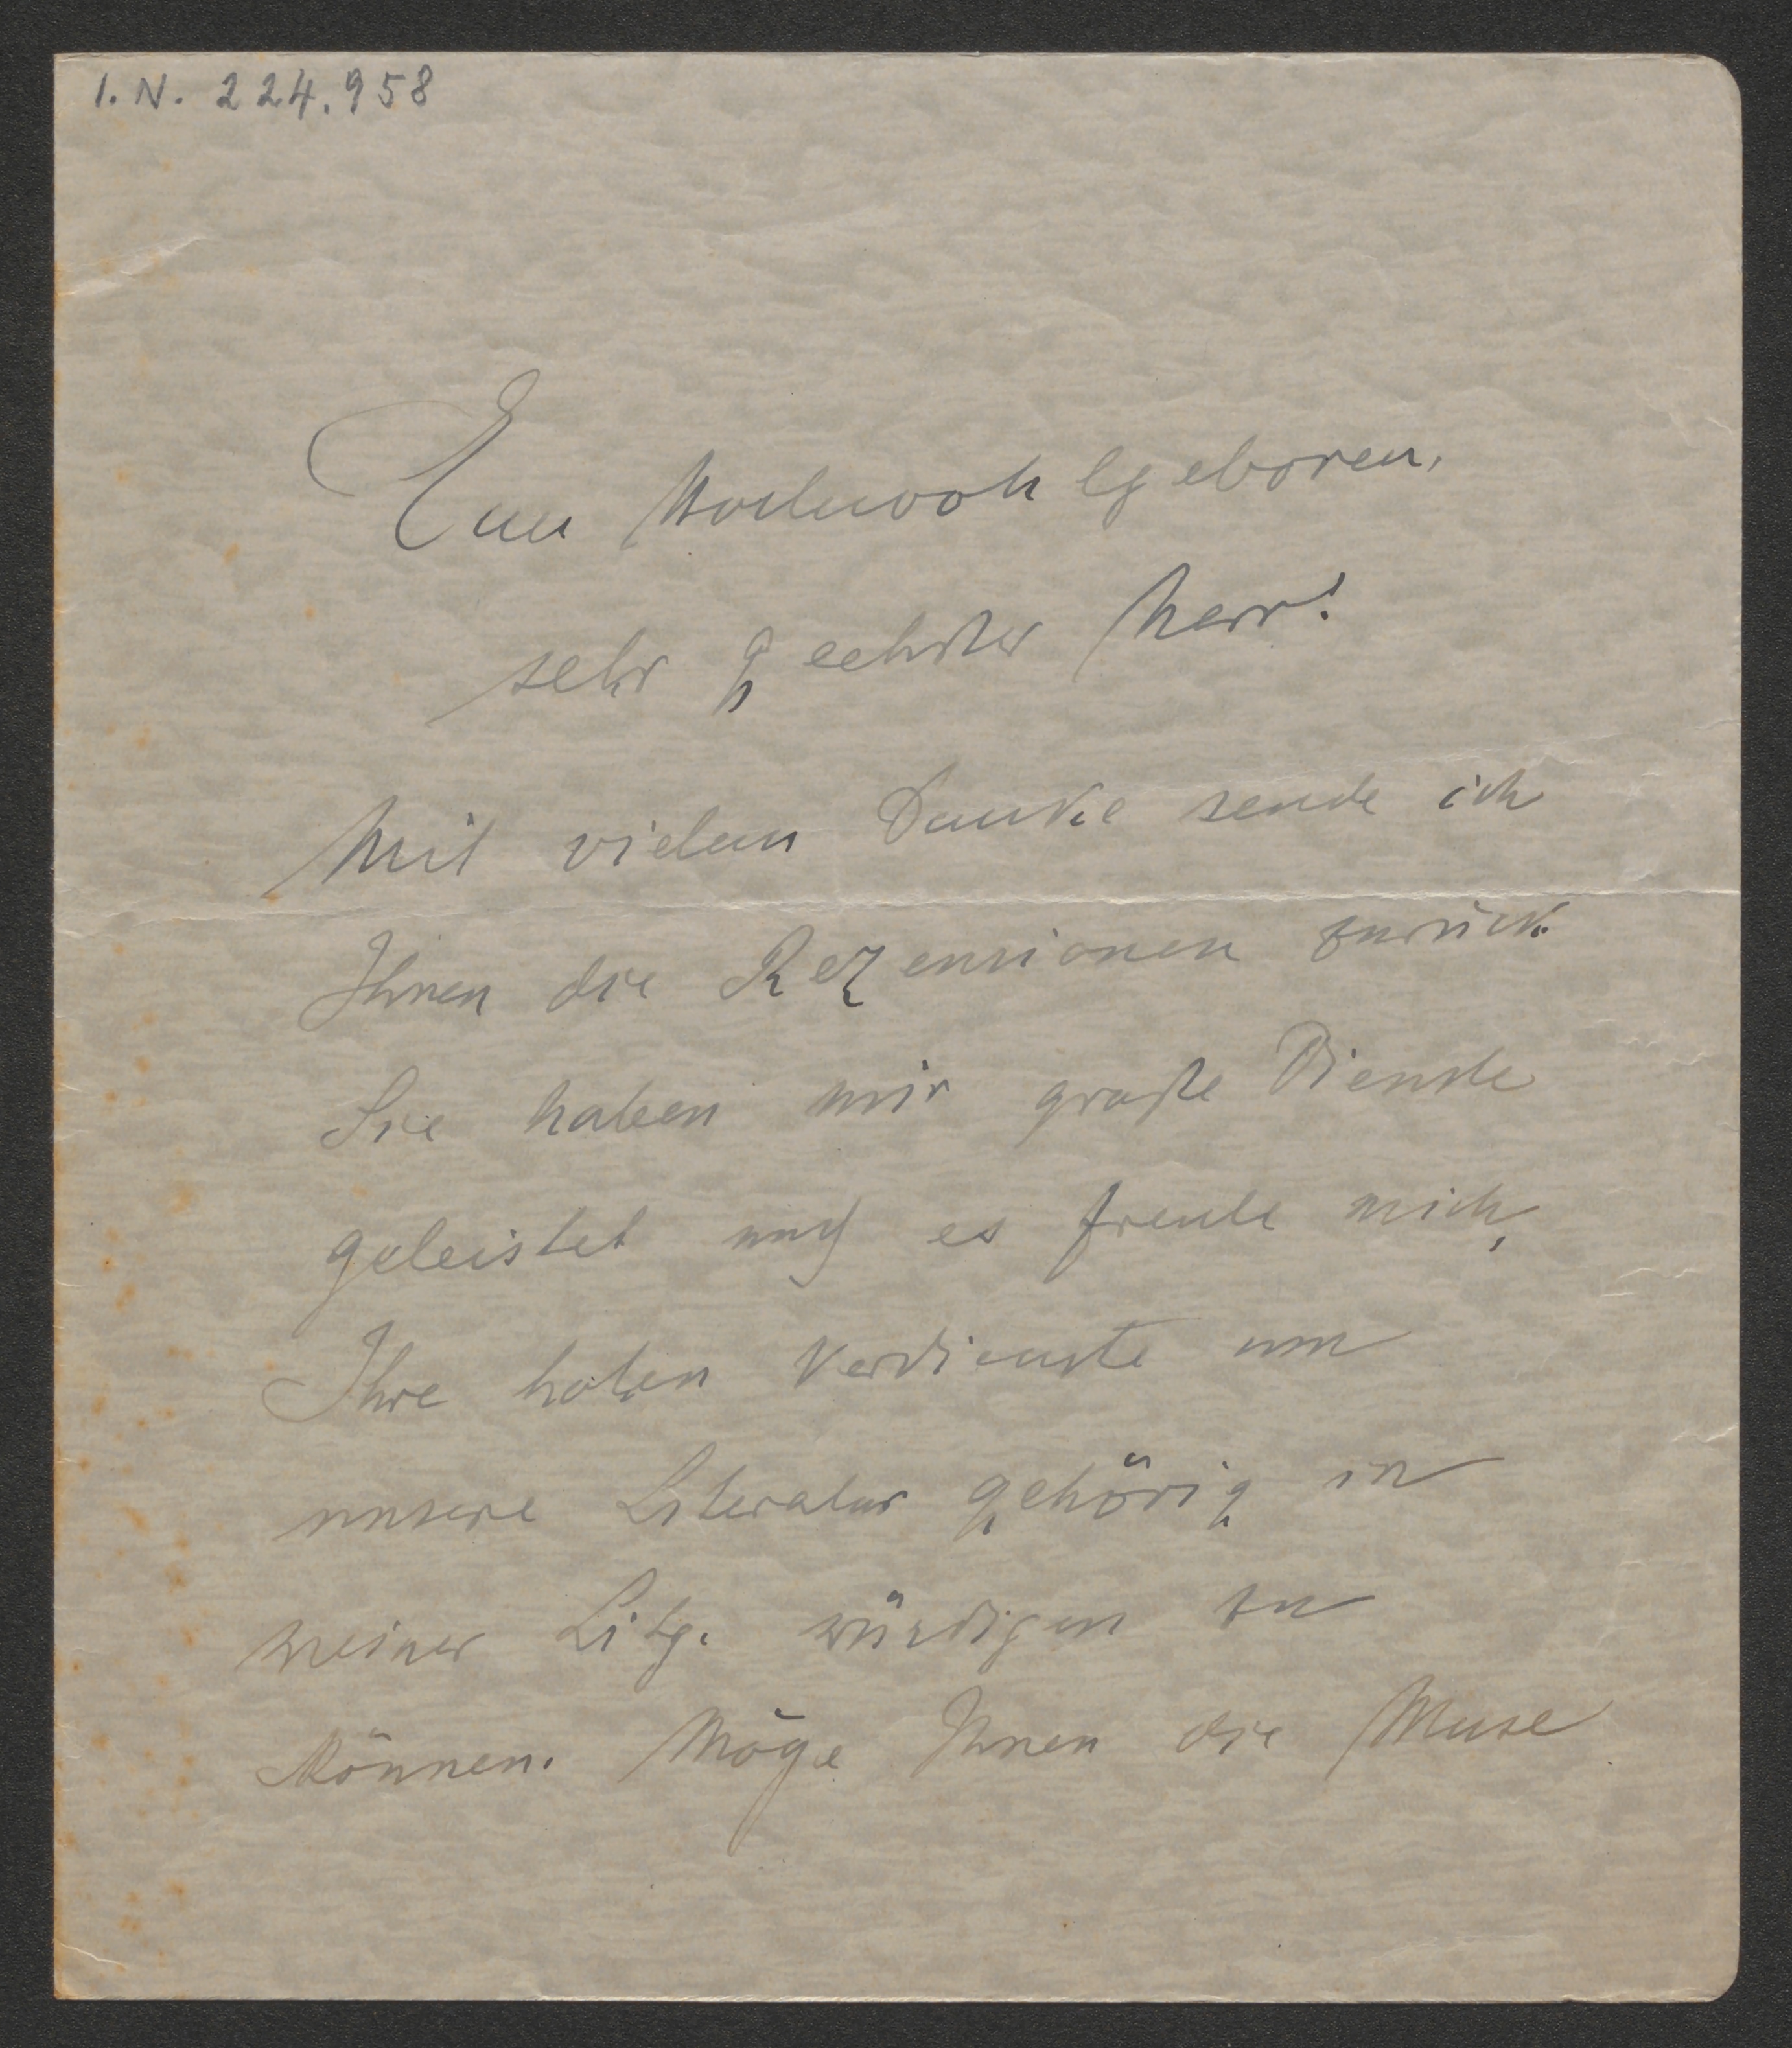 I.N. 224.958
Euer Hochwohlgeboren,
sehr geehrter Herr!
Mit vielem Danke sende ich
Ihnen die Rezensionen zurück.
Sie haben mir große Dienste
geleistet und es freute mich,
Ihre hohen Verdienste um
unsere Literatur gehörig in
meiner Litg. würdigen zu
können. Möge Ihnen die Muse